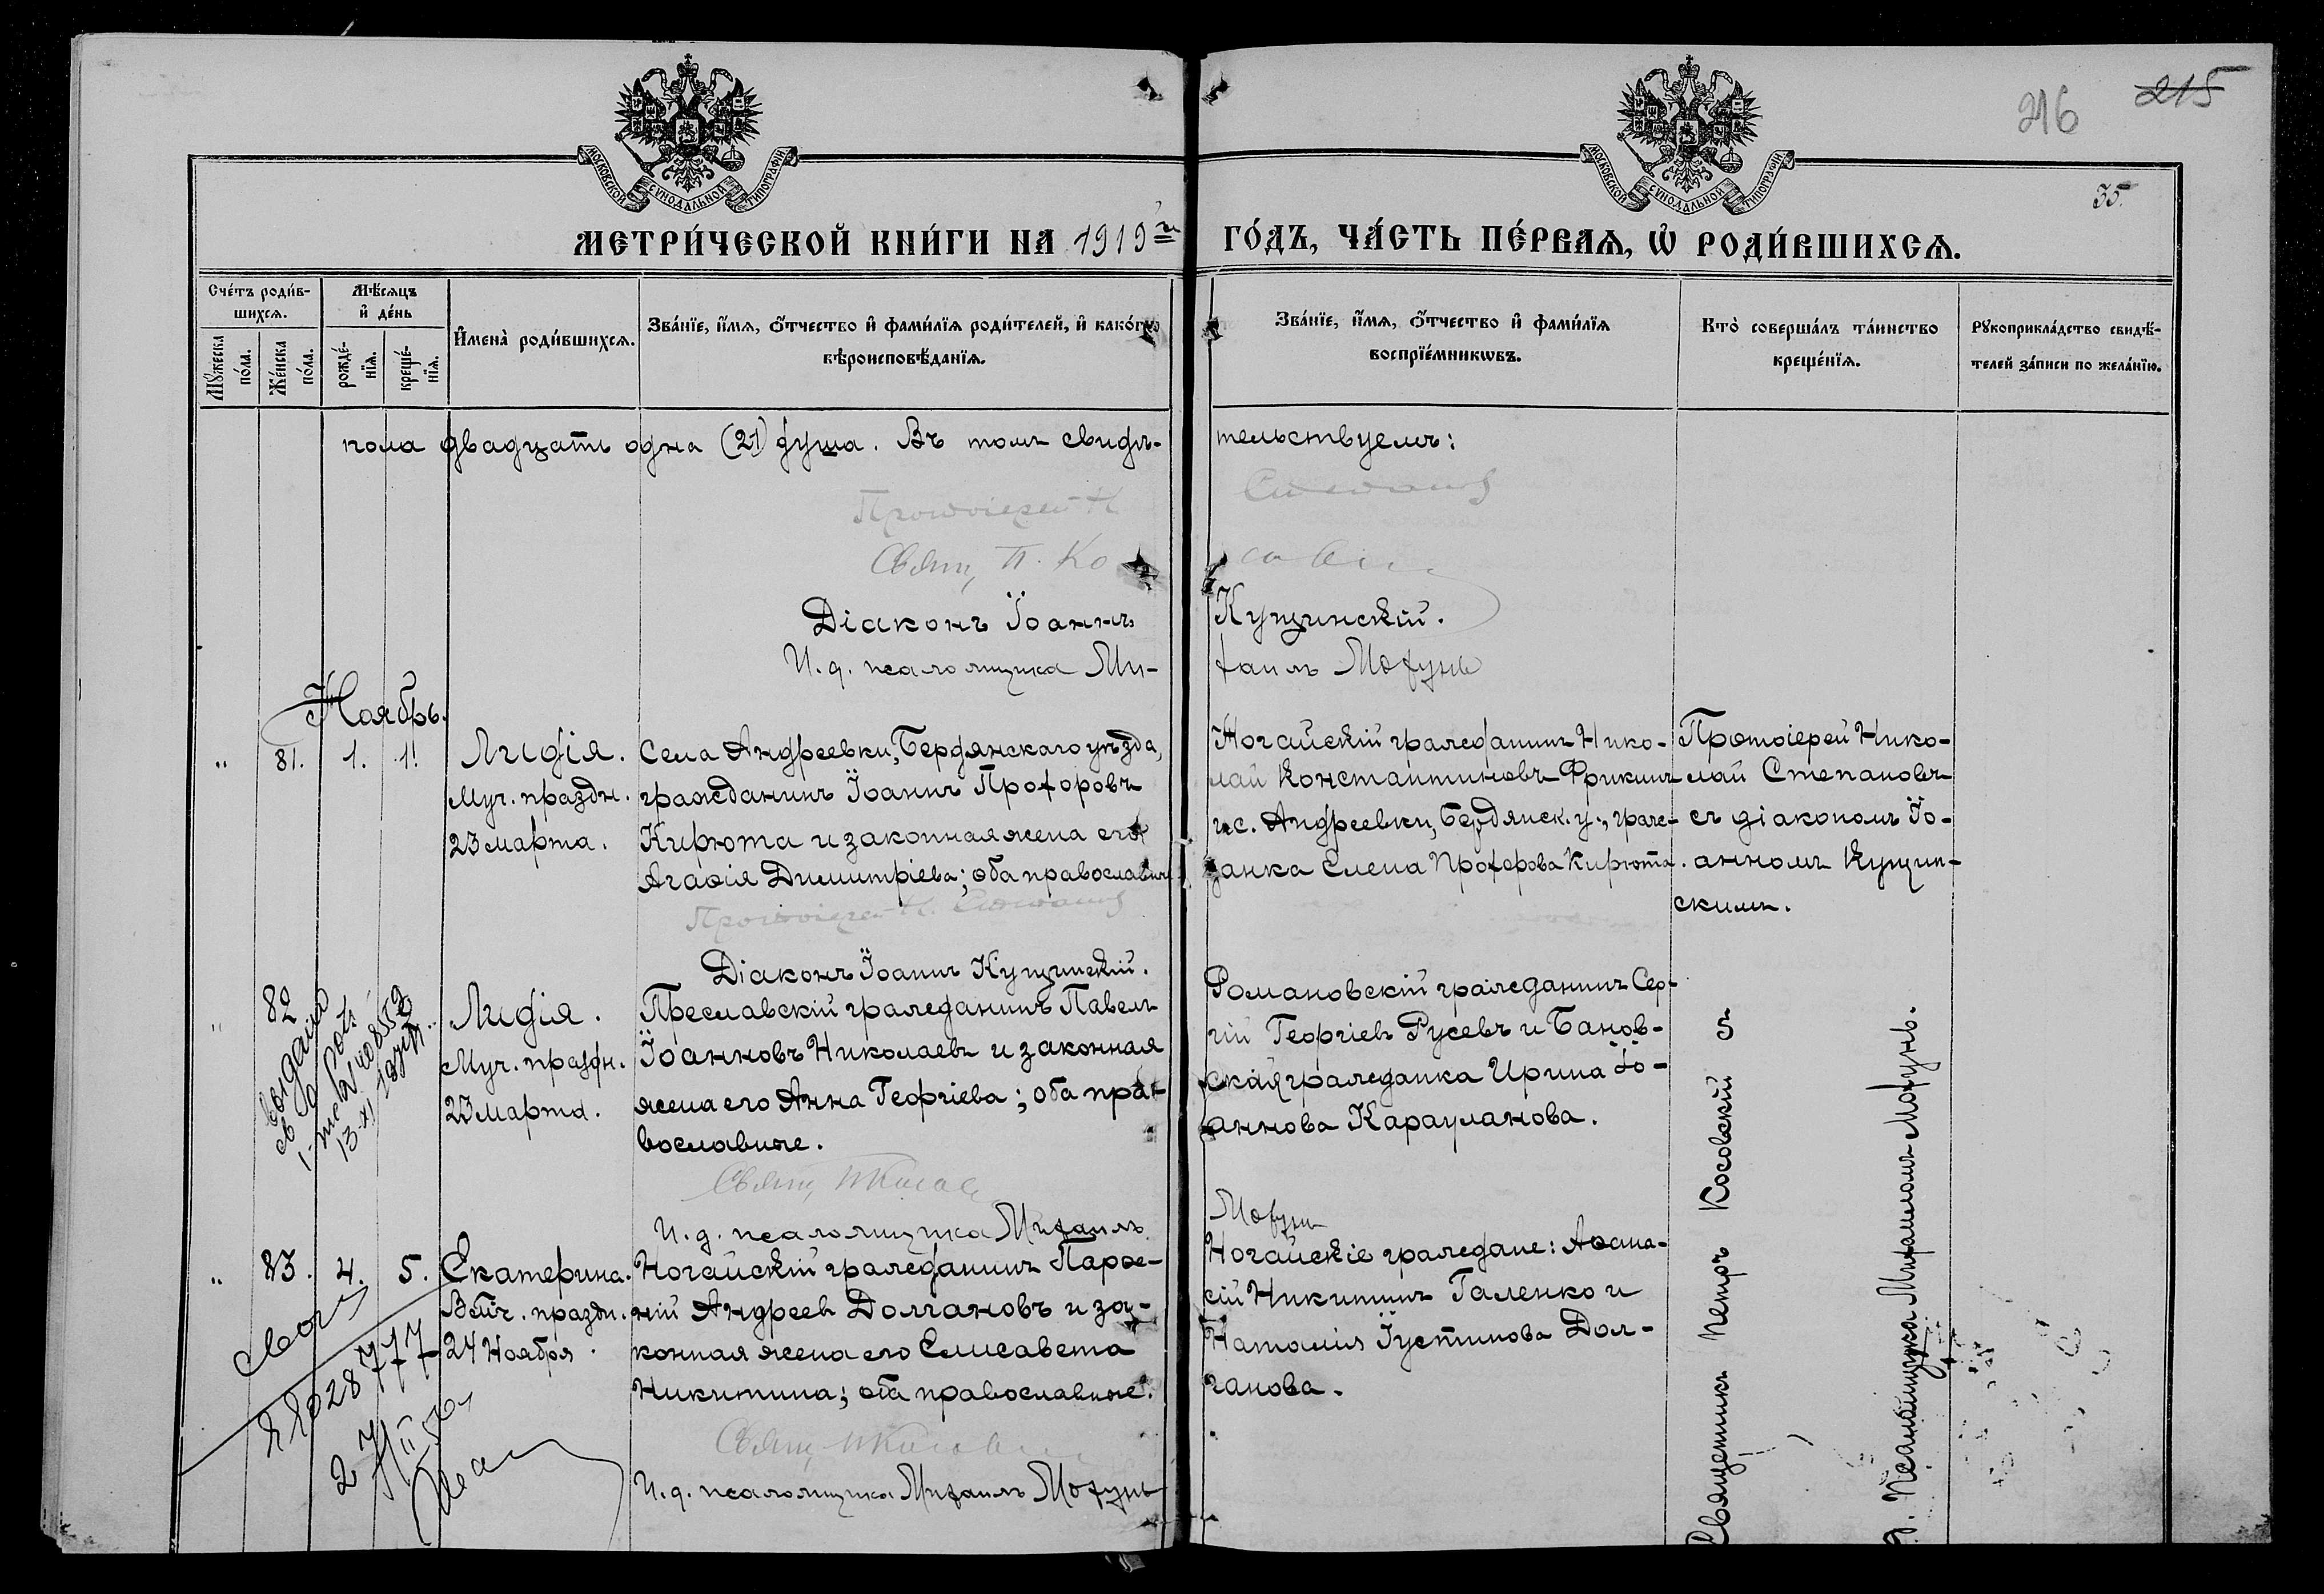 216 215
35.
МОСКОВСКОЙ СѴНОДАЛЬНОЙ ТИПОГРАФІИ
МОСКОВСКОЙ СѴНОДАЛЬНОЙ ТИПОГРАФІИ
МЕТРИ́ЧЕСКОЙ КНИ́ГИ НА 1919й ГО́ДЪ, ЧА́СТЬ ПЕ́РВАЯ, Ѡ РОДИ́ВШИХСЯ.
Сче́тъ роди́в-
шихся.
Мꙋ́жеска
по́ла.
Же́нска
по́ла.
Мѣ́сяцъ
и҆ де́нь
рожде́-
нїя.
креще́-
нїя.
И҆мена̀ роди́вшихся.
Зва́нїе, и҆́мя, ѻ҆́тчество и҆ фами́лїя роди́телей, и҆ како́гѡ
вѣроисповѣ́данїя.
Зва́нїе, и҆́мя, ѻ҆́тчество и҆ фами́лїя
воспрїе́мникѡвъ.
Кто̀ соверша́лъ та́инство
креще́нїя.
Рꙋкоприкла́дство свидѣ́-
телей за́писи по жела́нїю.
пола двадцать одна (21) душа. Въ томъ свидѣ-
тельствуемъ:
Протоіерей Н. Степановъ
Свящ. П. Косовскій
Діаконъ Іоаннъ Кущинскій.
И. д. псаломщика Ми-
хаилъ Мохунь
Ноябрь.
" 81. 1. 1.
Лидія.
Муч. праздн.
23 марта.
Села Андреевки, Бердянскаго уѣзда,
гражданинъ Іоаннъ Прохоровъ
Кирюта и законная жена его
Агаѳія Димитріева; оба православные.
Ногайскій гражданинъ Нико-
лай Константиновъ Фрикинъ
и с. Андреевки, Бердянск. у., граж-
данка Елена Прохорова Кирюта.
Протоіерей Нико-
лай Степановъ
съ діакономъ Іо-
анномъ Кущин-
скимъ.
Протоіерей Н. Степановъ
Діаконъ Іоаннъ Кущинскій.
" 82
Лидія.
Муч. праздн.
23 марта.
Преславскій гражданинъ Павелъ
Іоанновъ Николаевъ и законная
жена его Анна Георгіева; оба пра-
вославные.
Романовскій гражданинъ Сер-
гій Георгіевъ Русевъ и Банов-
ская гражданка Ирина Іо-
аннова Карауланова.
Свящ. П. Косовскій
И. д. псаломщика Михаилъ
Мохунь
" 83. 4. 5.
Екатерина.
Вмч. праздн.
24 Ноября.
Ногайскій гражданинъ Парѳе-
ній Андреевъ Долгановъ и за-
конная жена его Елисавета
Никитина; оба православные.
Ногайскіе граждане: Аѳана-
сій Никитинъ Галенко и
Наталія Іустинова Дол-
ганова.
Свящ. П. Косовскій
И. д. псаломщика Михаилъ Мохунь
Священникъ Петръ Косовскій съ
д. Псаломщика Михаиломъ Мохунь.